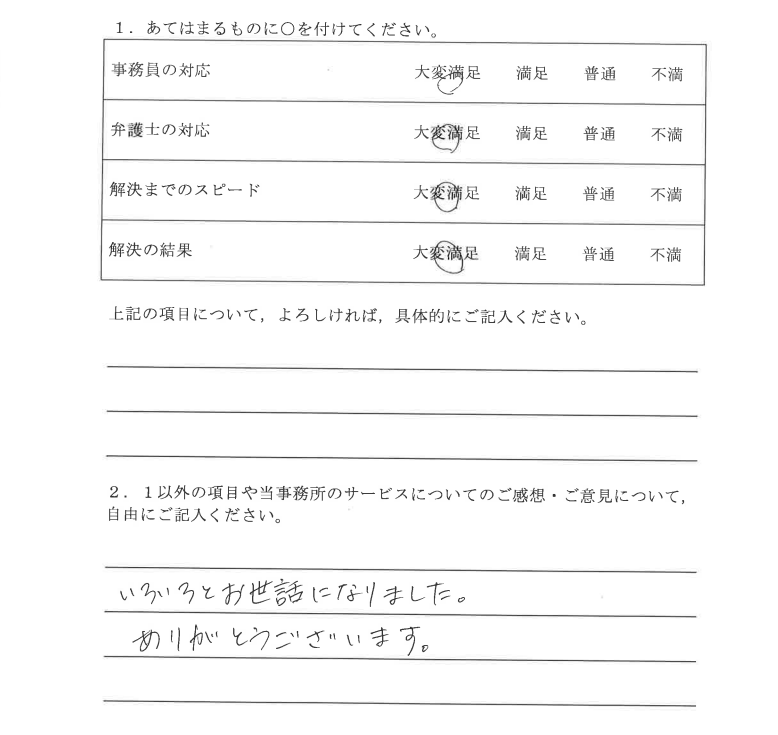 １．あてはまるものに○を付けてください。
事務員の対応 大変満足 満足 普通 不満
弁護士の対応 大変満足 満足 普通 不満
解決までのスピード 大変満足 満足 普通 不満
解決の結果 大変満足 満足 普通 不満
上記の項目について，よろしければ，具体的にご記入ください。
２．１以外の項目や当事務所のサービスについてのご感想・ご意見について，
自由にご記入ください。
いろいろとお世話になりました。
ありがとうございます。